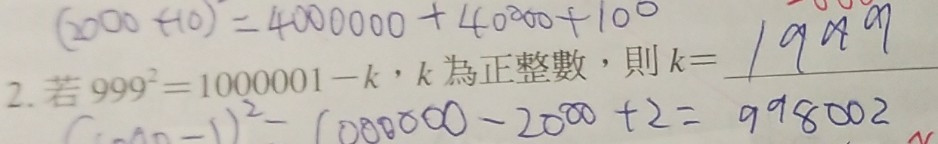 (2000+10)²=4000000+40000+100
2. 若 999²=1000001-k，k 為正整數，則 k= 1999
(1000-1)²=1000000-2000+2=998002